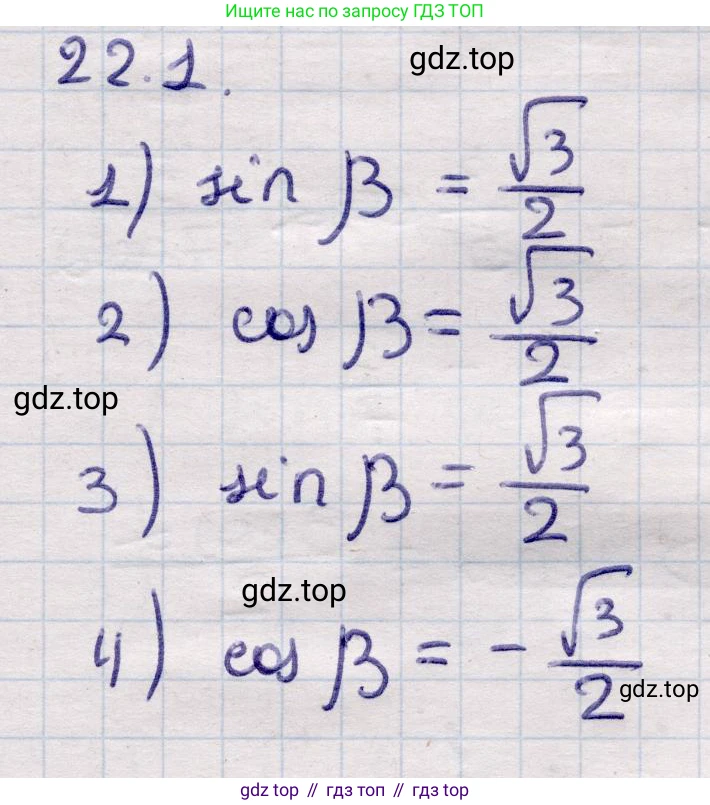 Ищите нас по запросу ГДЗ ТОП
22.1.
gdz.top
1) sin β = √3/2
2) cos β = √3/2
gdz.top
3) sin β = √3/2
gdz.top
4) cos β = - √3/2
gdz.top
gdz top // гдз топ // gdz top